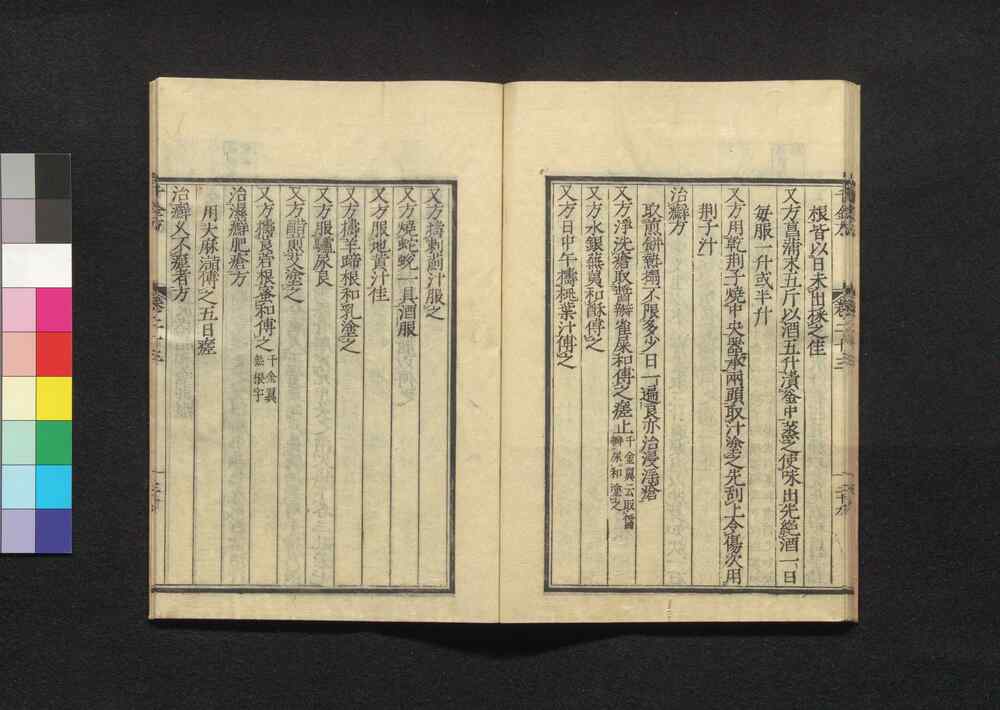 根皆以日未出採之佳
又方菖蒲末五斤以酒五升漬釜中蒸之使味出先絶酒一日
每服一升或半升
又方用乾荆子燒中央器承兩頭取汁塗之先刮上令傷次用
荆子汁
治癬方
取煎餅熱搨不限多少日一遍良亦治浸淫瘡
又方淨洗瘡取醬瓣雀屎和傅之瘥止千金翼云取醬
瓣屎和塗之
又方水銀蕪荑和酥傅之
又方日中午擣桃葉汁傅之
又方擣刺薊汁服之
又方燒蛇蛻一具酒服
又方服地黃汁佳
又方擣羊蹄根和乳塗之
又方服驢尿良
又方醋煎艾塗之
又方擣莨菪根蜜和傅之千金翼
無根字
治濕癬肥瘡方
用大麻㵩傅之五日瘥
治癬久不瘥者方